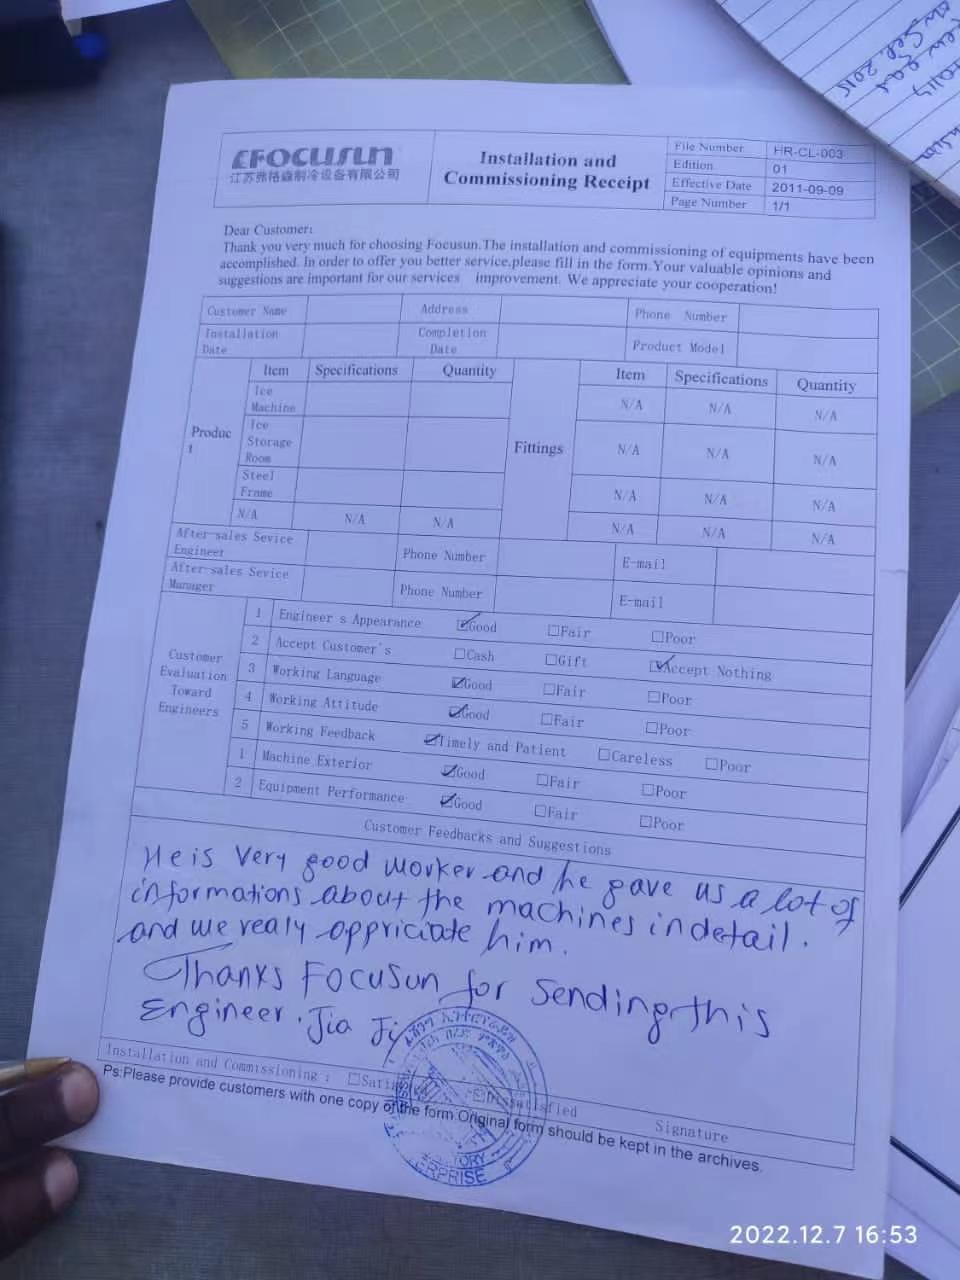 FOCUSUN
江苏弗格森制冷设备有限公司
Installation and
Commissioning Receipt
File Number HR-CL-003
Edition 01
Effective Date 2011-09-09
Page Number 1/1
Dear Customer:
Thank you very much for choosing Focusun.The installation and commissioning of equipments have been
accomplished. In order to offer you better service,please fill in the form.Your valuable opinions and
suggestions are important for our services improvement. We appreciate your cooperation!
Customer Name Address Phone Number
Installation Date Completion Date Product Model
Item Specifications Quantity Item Specifications Quantity
Product
Fittings
Ice Machine N/A N/A N/A
Ice Storage Room N/A N/A N/A
Steel Frame N/A N/A N/A
N/A N/A N/A N/A N/A N/A
After-sales Sevice Engineer Phone Number E-mail
After-sales Sevice Manager Phone Number E-mail
Customer Evaluation Toward Engineers
1 Engineer s Appearance ☑Good □Fair □Poor
2 Accept Customer's □Cash □Gift ☑Accept Nothing
3 Working Language ☑Good □Fair □Poor
4 Working Attitude ☑Good □Fair □Poor
5 Working Feedback ☑Timely and Patient □Careless □Poor
1 Machine Exterior ☑Good □Fair □Poor
2 Equipment Performance ☑Good □Fair □Poor
Customer Feedbacks and Suggestions
He is very good worker and he gave us a lot of
informations about the machines in detail.
and we realy appriciate him.
Thanks Focusun for Sending this
Engineer. Jia Ji
Installation and Commissioning : □ Dissatisfied
Signature
Ps:Please provide customers with one copy of the form.Original form should be kept in the archives.
2022.12.7 16:53